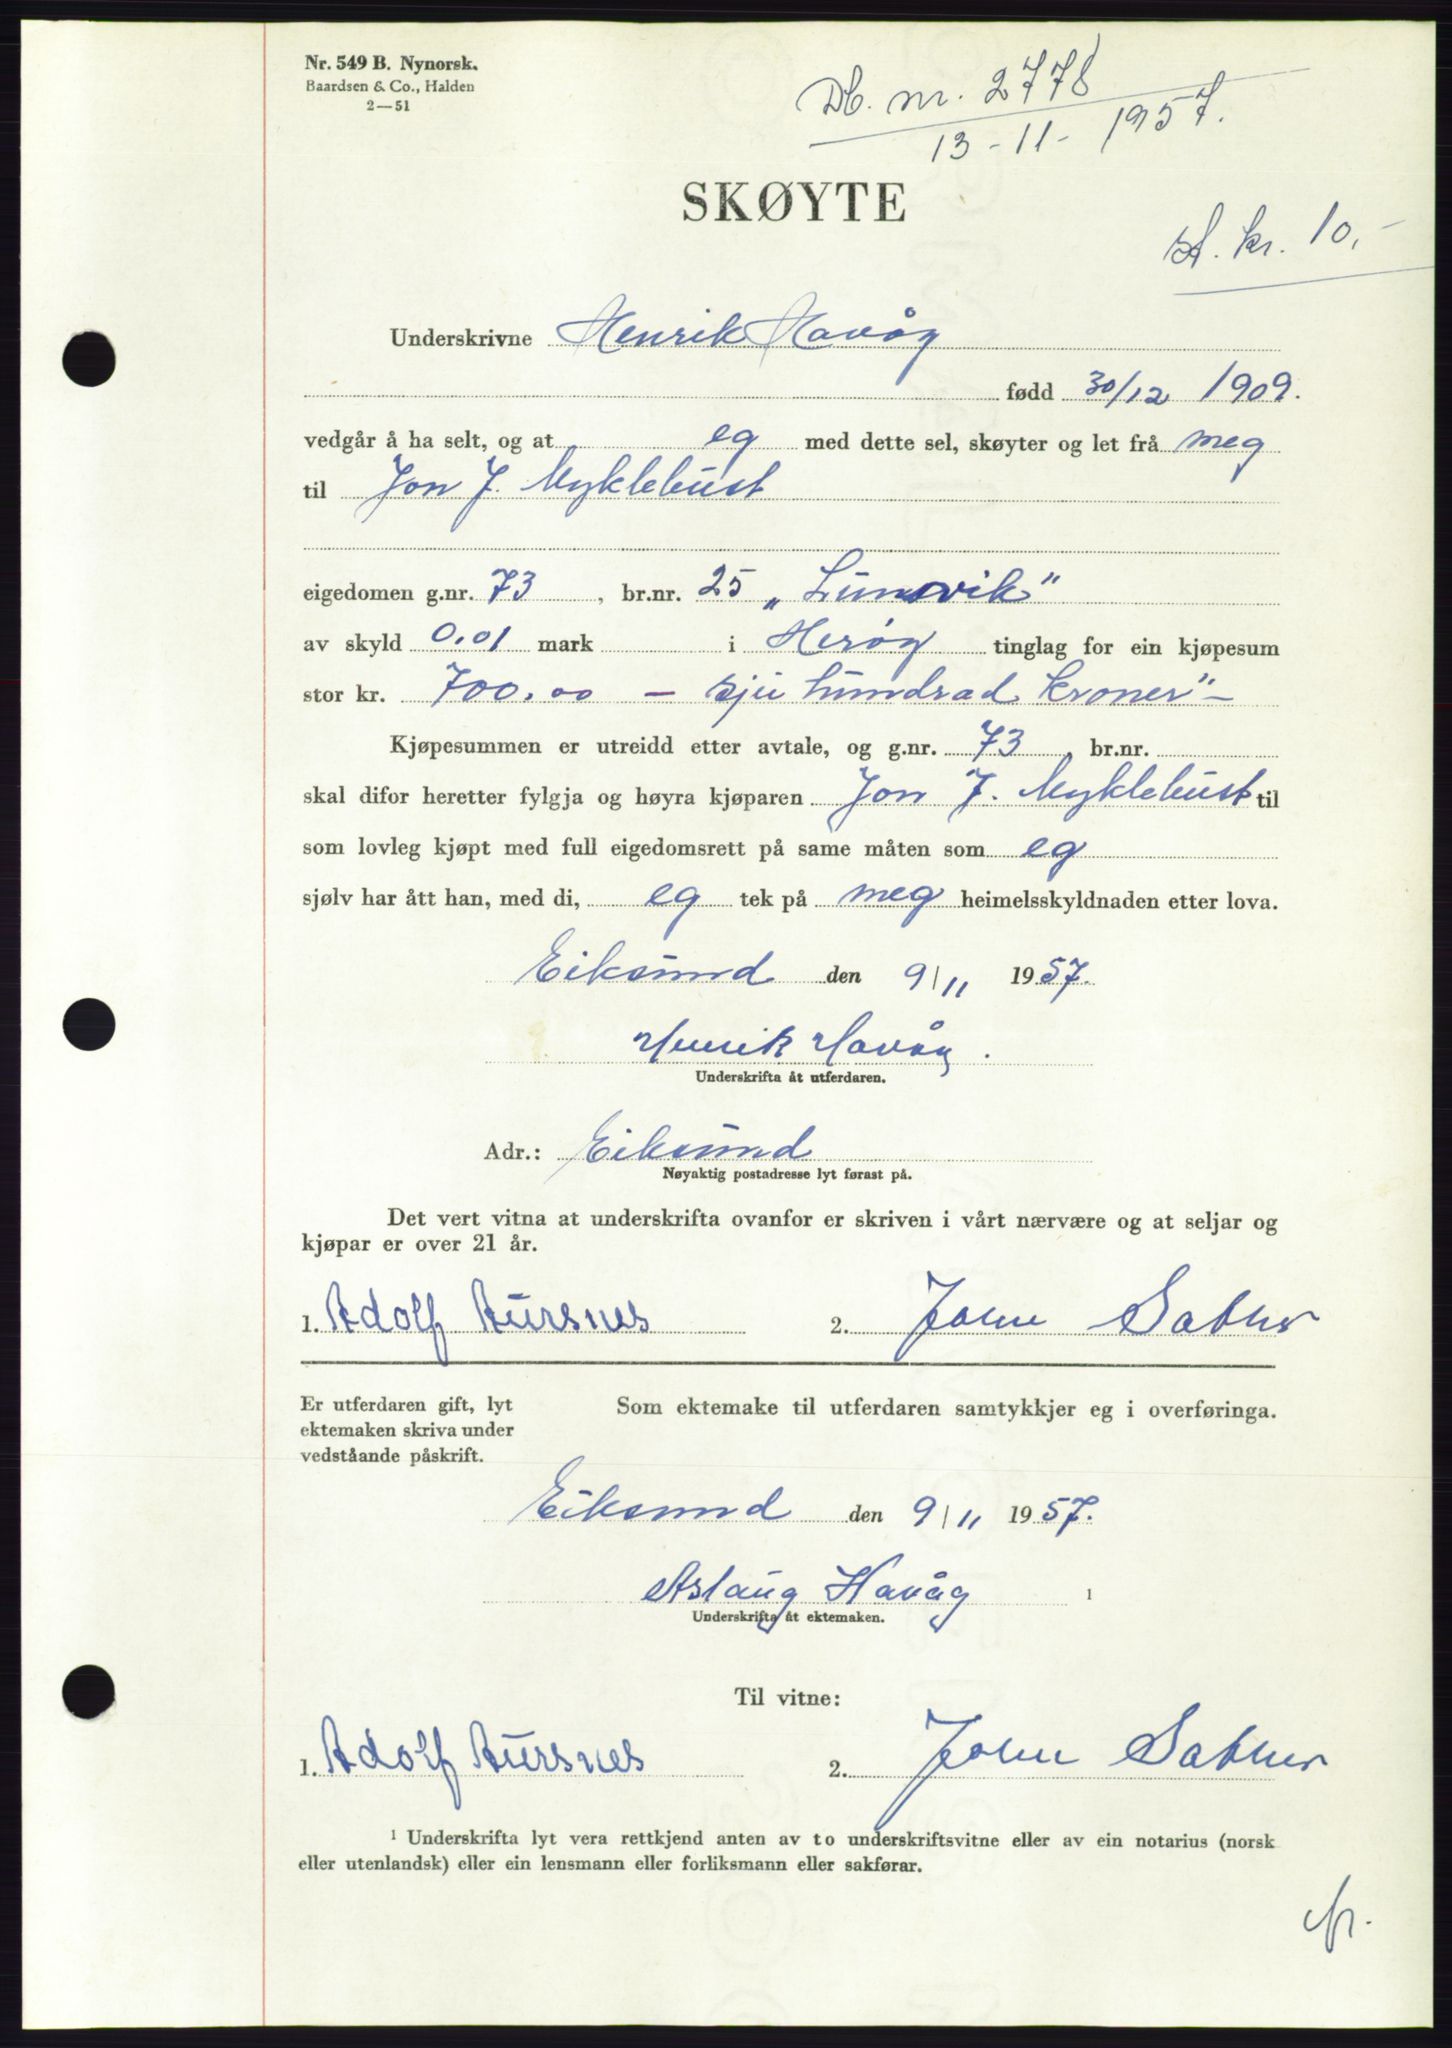 Nr. 549 B. Nynorsk.
Baardsen & Co., Halden
2—51
Db. nr. 2778
13-11-1957.
SKØYTE
St. kr. 10,-
Underskrivne Henrik Havåg
fødd 30/12 1909.
vedgår å ha selt, og at eg med dette sel, skøyter og let frå meg
til Jon J. Myklebust
eigedomen g.nr. 73, br.nr. 25 „Lunsvik”
av skyld 0,01 mark i Herøy tinglag for ein kjøpesum
stor kr. 700,00 — sju hundrad kroner” —
Kjøpesummen er utreidd etter avtale, og g.nr. 73, br.nr.
skal difor heretter fylgja og høyra kjøparen Jon J. Myklebust til
som lovleg kjøpt med full eigedomsrett på same måten som eg
sjølv har ått han, med di, eg tek på meg heimelsskyldnaden etter lova.
Eiksund den 9/11 1957.
Henrik Havåg.
Underskrifta åt utferdaren.
Adr.: Eiksund
Nøyaktig postadresse lyt førast på.
Det vert vitna at underskrifta ovanfor er skriven i vårt nærvære og at seljar og
kjøpar er over 21 år.
1. Adolf Aursnes 2. John
Er utferdaren gift, lyt
ektemaken skriva under
vedståande påskrift.
Som ektemake til utferdaren samtykkjer eg i overføringa.
Eiksund den 9/11 1957.
Aslaug Havåg 1
Underskrifta åt ektemaken.
Til vitne:
1. Adolf Aursnes 2. John
1 Underskrifta lyt vera rettkjend anten av to underskriftsvitne eller av ein notarius (norsk
eller utenlandsk) eller ein lensmann eller forliksmann eller sakførar.